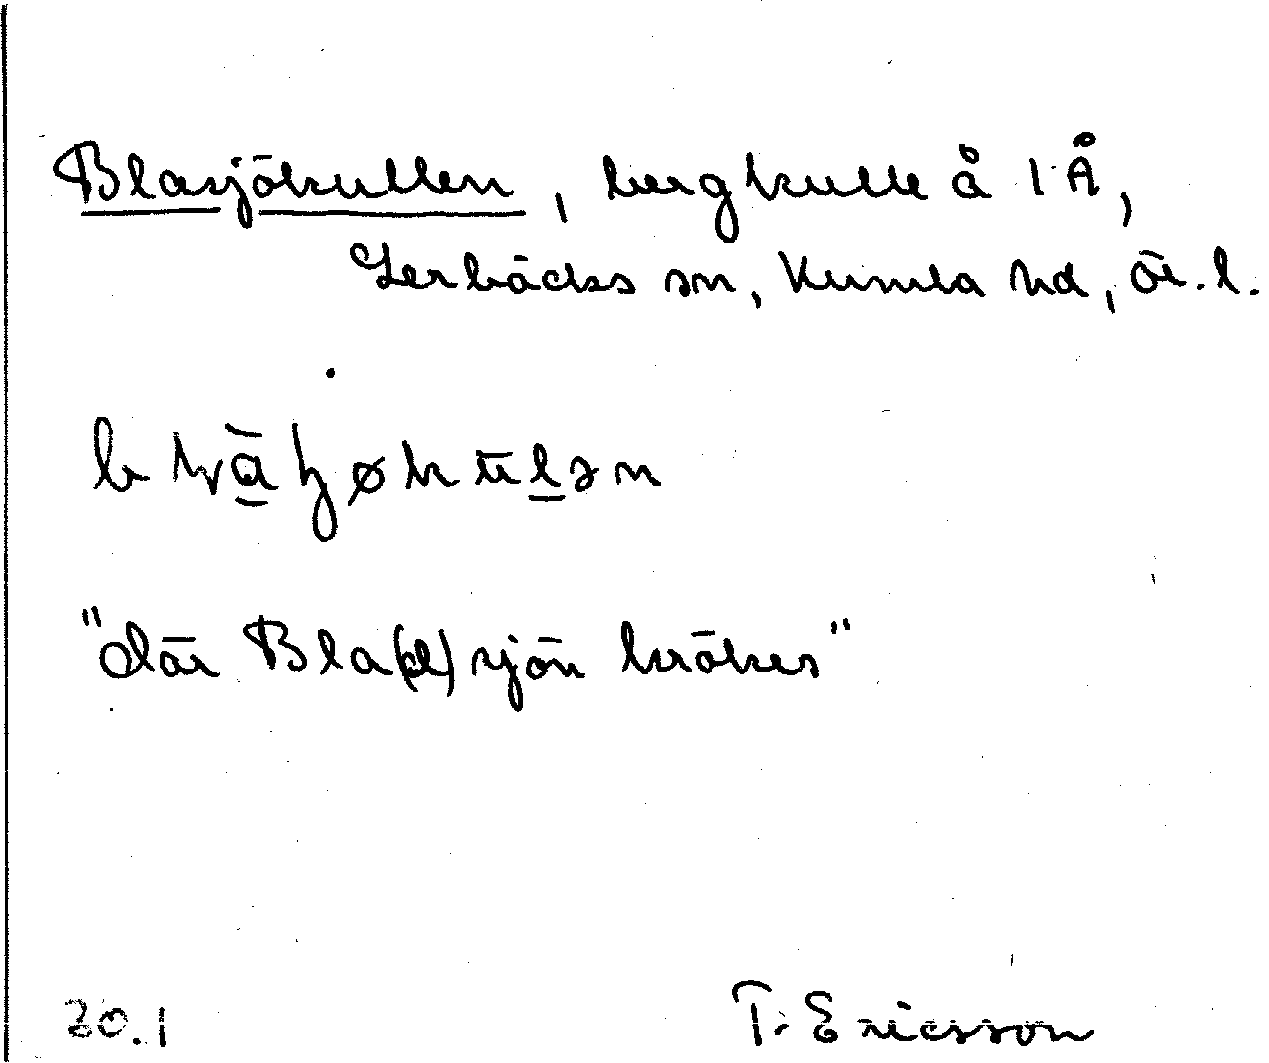 Blasjökullen, bergkulle å 1 Å,
Lerbäcks sn, Kumla hd, Ör. l.
"där Bla(d)sjön krökes"
20.1 T. Ericsson